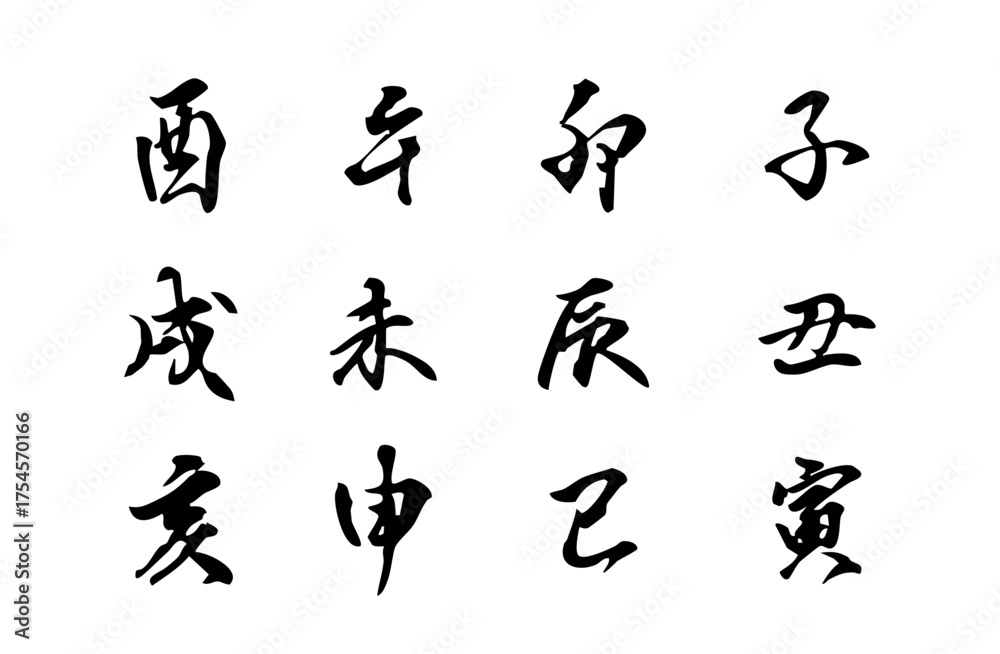 子丑寅
卯辰巳
午未申
酉戌亥
Adobe Stock | #1754570166
Adobe Stock